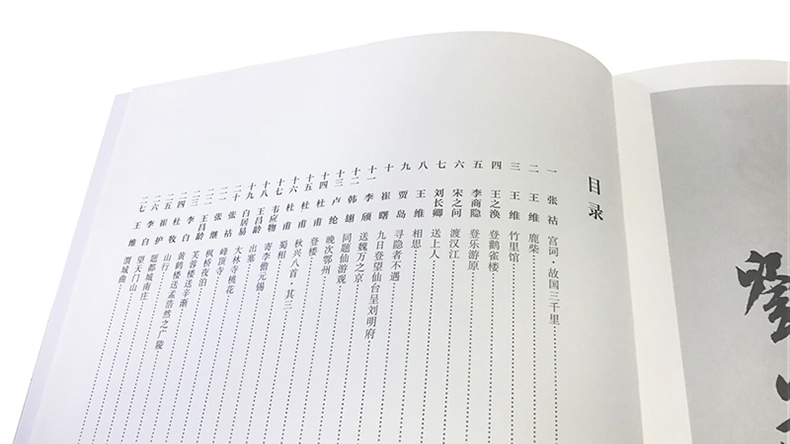 目录
一 张祜 宫词·故国三千里
二 王维 鹿柴
三 王维 竹里馆
四 王之涣 登鹳雀楼
五 李商隐 登乐游原
六 宋之问 渡汉江
七 刘长卿 送上人
八 王维 相思
九 贾岛 寻隐者不遇
十 崔曙 九日登望仙台呈刘明府
十一 李颀 送魏万之京
十二 韩翃 同题仙游观
十三 卢纶 晚次鄂州
十四 杜甫 登楼
十五 杜甫 秋兴八首,其三
十六 杜甫 蜀相
十七 韦应物 寄李儋元锡
十八 王昌龄 出塞
十九 白居易 大林寺桃花
二十 张祜 峰顶寺
二一 张继 枫桥夜泊
二二 王昌龄 芙蓉楼送辛渐
二三 李白 黄鹤楼送孟浩然之广陵
二四 杜牧 山行
二五 崔护 题都城南庄
二六 李白 望天门山
二七 王维 渭城曲